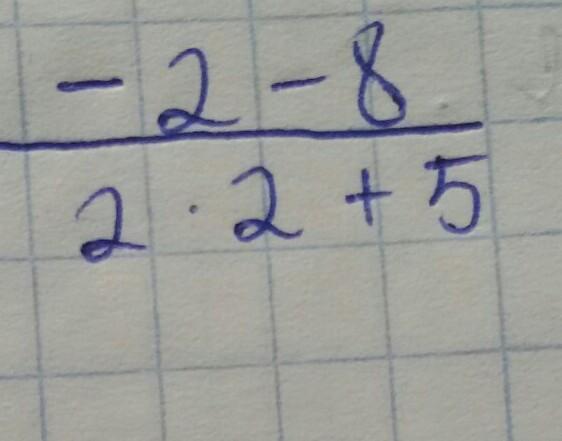 - 2 - 8
2 · 2 + 5